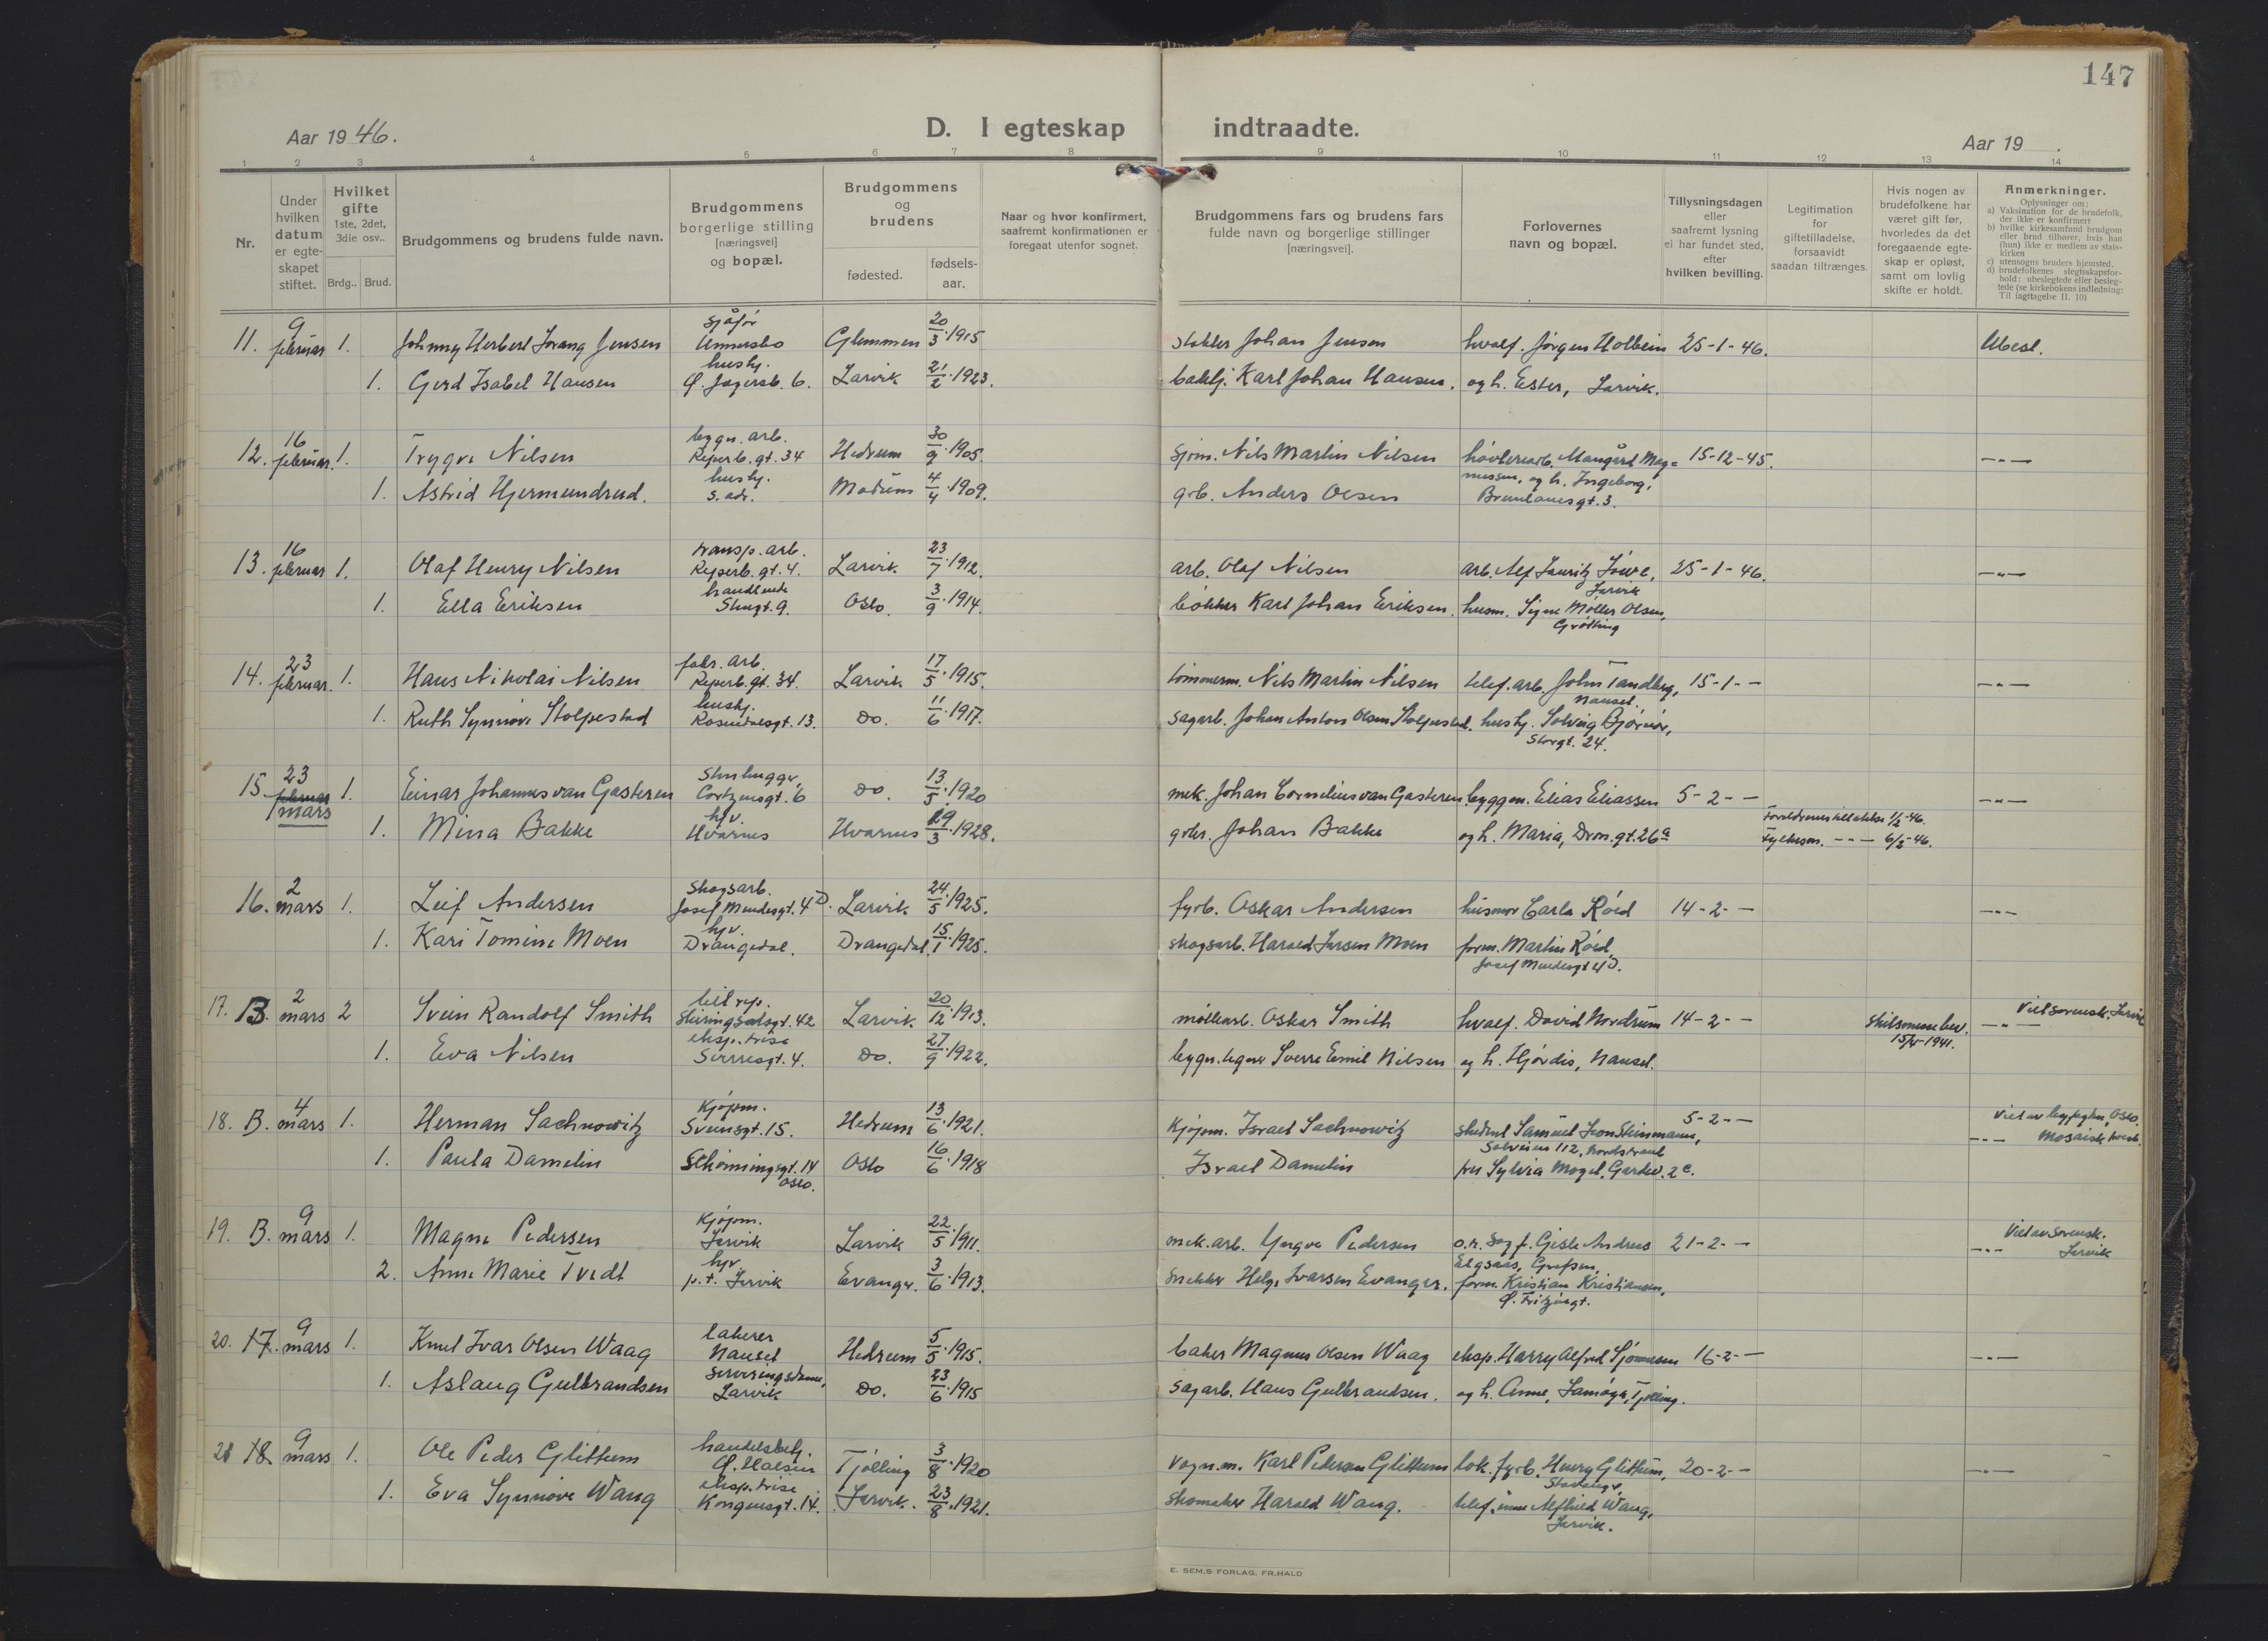 147
Aar 19 46.
D. I egteskap indtraadte.
Aar 19 .
1 2 3 4 5 6 7 8 9 10 11 12 13 14
Nr.
Under
hvilken
datum
er egte-
skapet
stiftet.
Hvilket
gifte
1ste, 2det,
3die osv..
Brdg.. Brud.
Brudgommens og brudens fulde navn.
Brudgommens
borgerlige stilling
[næringsvei]
og bopæl.
Brudgommens
og
brudens
fødested.
fødsels-
aar.
Naar og hvor konfirmert,
saafremt konfirmationen er
foregaat utenfor sognet.
Brudgommens fars og brudens fars
fulde navn og borgerlige stillinger
[næringsvei].
Forlovernes
navn og bopæl.
Tillysningsdagen
eller
saafremt lysning
ei har fundet sted,
efter
hvilken bevilling.
Legitimation
for
giftetilladelse,
forsaavidt
saadan tiltrænges.
Hvis nogen av
brudefolkene har
været gift før,
hvorledes da det
foregaaende egte-
skap er opløst,
samt om lovlig
skifte er holdt.
Anmerkninger.
Oplysninger om:
a) Vaksination for de brudefolk,
der ikke er konfirmert
b) hvilke kirkesamfund brudgom
eller brud tilhører, hvis han
(hun) ikke er medlem av stats-
kirken
c) utensogns bruders hjemsted.
d) brudefolkenes slegtsskapsfor-
hold: ubeslegtede eller besleg-
tede (se kirkebokens indledning:
Til iagttagelse II. 10)
11. 9 februar 1. Johnny Herbert Jensen sjåfør Glemmen 20/3.1915 Johan Jensen hvalf. Jørgen Holbein 25-1-46. Ubesl.
1. Gerd Isabel Hansen hushj. Ø. Jegersb. 6. Larvik 21/2.1923. Karl Johan Hansen. og h. Ester, Larvik.
12. 16 februar 1. Trygve Nilsen bygn. arb. Reperb.gt. 34 Hedrum 30/9.1905. Sjøm. Nils Martin Nilsen høvleriarb. Mangård Mag= 15-12-45. -"-
1. Astrid Hjermundrud. hushj. s. adr. Modum 4/4.1909. grb. Anders Olsen nussen, og h. Ingeborg,
Brunlanesgt. 3.
13. 16 februar 1. Olaf Henry Nilsen transp. arb. Reperb. gt. 4. Larvik 23/7.1912. arb. Olaf Nilsen arb. Alf Lauritz 25-1-46. -"-
Larvik
1. Ella Eriksen Oslo 3/9.1914. bøkker Karl Johan Eriksen. husm. Signe Møller Olsen,
14. 23 februar. 1. Hans Nikolai Nilsen fabr. arb. Reperb. gt. 34. Larvik 17/5.1915. tømmerm. Nils Martin Nilsen telef. arb. John Tandberg, 15-1-- -"-
Nanset.
1. Ruth Synnøve Stolpestad hushj. Rosendalsgt. 13. Do. 11/6.1917. sagarb. Johan Anton Olsen Stolpestad. hushj. Solveig Bjørnør,
Storgt. 24.
15 23 februar mars 1. Einar Johannes van Gasteren Stenhugger, Cortzensgt. 6 Do. 13/5.1920 mek. Johan Cornelius van Gasteren byggm. Elias Eliassen 5-2-- -"-
Foreldrenes tillatelse 1/2-46.
1. Minna Bakke hjv. Hvarnes Hvarnes 29/3.1928. grbr. Johan Bakke og h. Maria, Dron. gt. 26a Fylkesm. --- 6/2-46.
16. 2 mars 1. Leif Andersen Skogsarb. Josef Mendesgt. 4D. Larvik 24/5.1925. fyrb. Oskar Andersen husmor Carla Røed 14-2-- -"-
1. Kari Tomine Moen hjv. Drangedal. Drangedal. 15/1.1925. skogsarb. Harald Jensen Moen form. Martin Røed
Josef Mendesgt 4D.
17. B. 2 mars 2 Svein Randolf Smith bilrep. Skiringsalsgt. 42 Larvik 20/12.1913. møllearb. Oskar Smith hvalf. David Nordrum 14-2-- Skilsmissebev. 15/4-1941. -"- Viet sorensk. Larvik
1. Eva Nilsen eksp.trise Sverresgt. 4. Do. 27/9.1922. bygn. tegner Sverre Emil Nilsen og h. Hjørdis, Nanset.
18. B. 4 mars 1. Herman Sachnowitz Kjøpm. Sveinsgt. 15. Hedrum 13/6.1921. Kjøpm. Israel Sachnowitz student Samuel Leon Steinmann, 5-2-- Viet av byfogden, Oslo.
Solveien 112, Nordstrand -"- Mosaisk
1. Paula Damelin Schønningsgt. 14 Oslo. Oslo 16/6.1918 Israel Damelin fru Sylvia Mogel, Gardev. 2c.
19. B. 9 mars 1. Magne Pedersen Kjøpm. Larvik Larvik 22/5.1911. mek. arb. Yngve Pedersen o.r. sagf. Gisle Andreas 21-2-- -"- Viet av sorensk. Larvik
Elgsaas, Grefsen,
2. Anne Marie Tvedt hjv. p.t. Larvik Evanger. 3/6.1913. Snekker Helge Ivarsen Evanger. form. Kristian Kristiansen,
Ø. Fritzøegt.
20. 17. 9 mars 1. Knut Ivar Olsen Waag Nanset Hedrum 5/5.1915. baker Magnus Olsen Waag eksp. Harry Alfred 16-2-- -"-
1. Aslaug Gulbrandsen Serveringsdame, Larvik Do. 23/6.1915 sagarb. Hans Gulbrandsen. og h. Anne, Tjølling.
21 18. 9 mars 1. Ole Peder Glittum handelsbetj. Ø. Halsen Tjølling 3/8.1920 Vogn.m. Karl Pedersen Glittum lok. fyrb. Henry Glittum, 20-2-- -"-
1. Eva Synnøve Wang eksp.trise Kongensgt. 14. Larvik. 23/8.1921. Skomaker Harald Wang. Alfhild Wang,
Larvik.
E. SEM,S FORLAG, FR.HALD